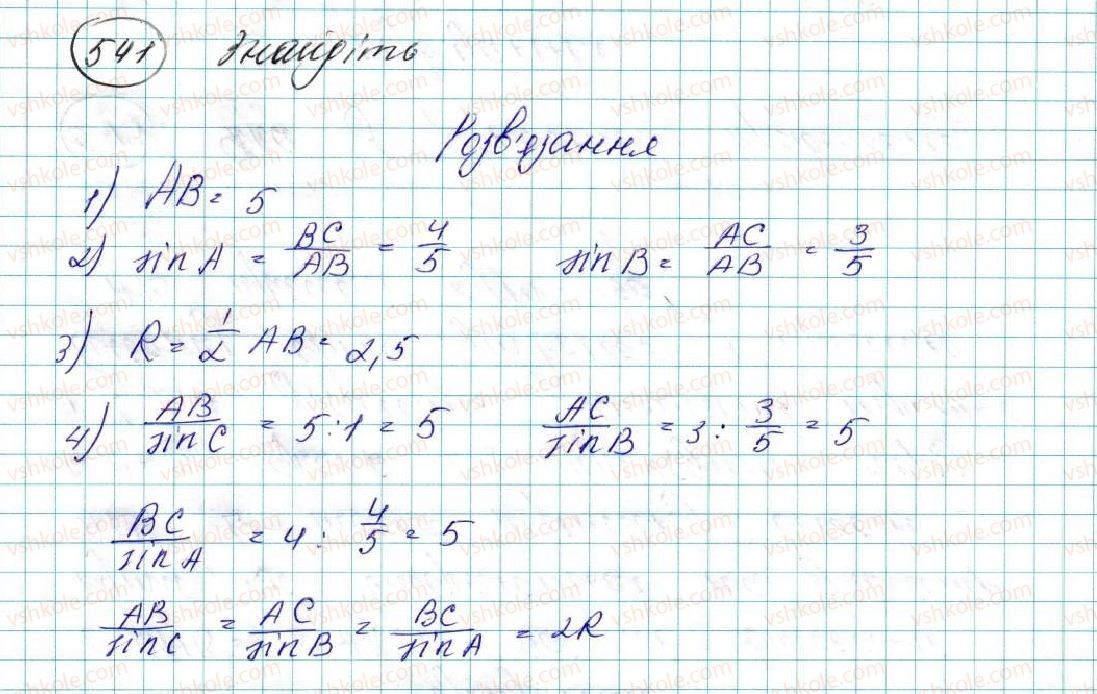 541 Знайдіть
Розв'язання
1) AB = 5
2) sin A = BC/AB = 4/5 sin B = AC/AB = 3/5
3) R = 1/2 AB = 2,5
4) AB/sin C = 5 : 1 = 5 AC/sin B = 3 : 3/5 = 5
BC/sin A = 4 : 4/5 = 5
AB/sin C = AC/sin B = BC/sin A = 2R
vshkole.com